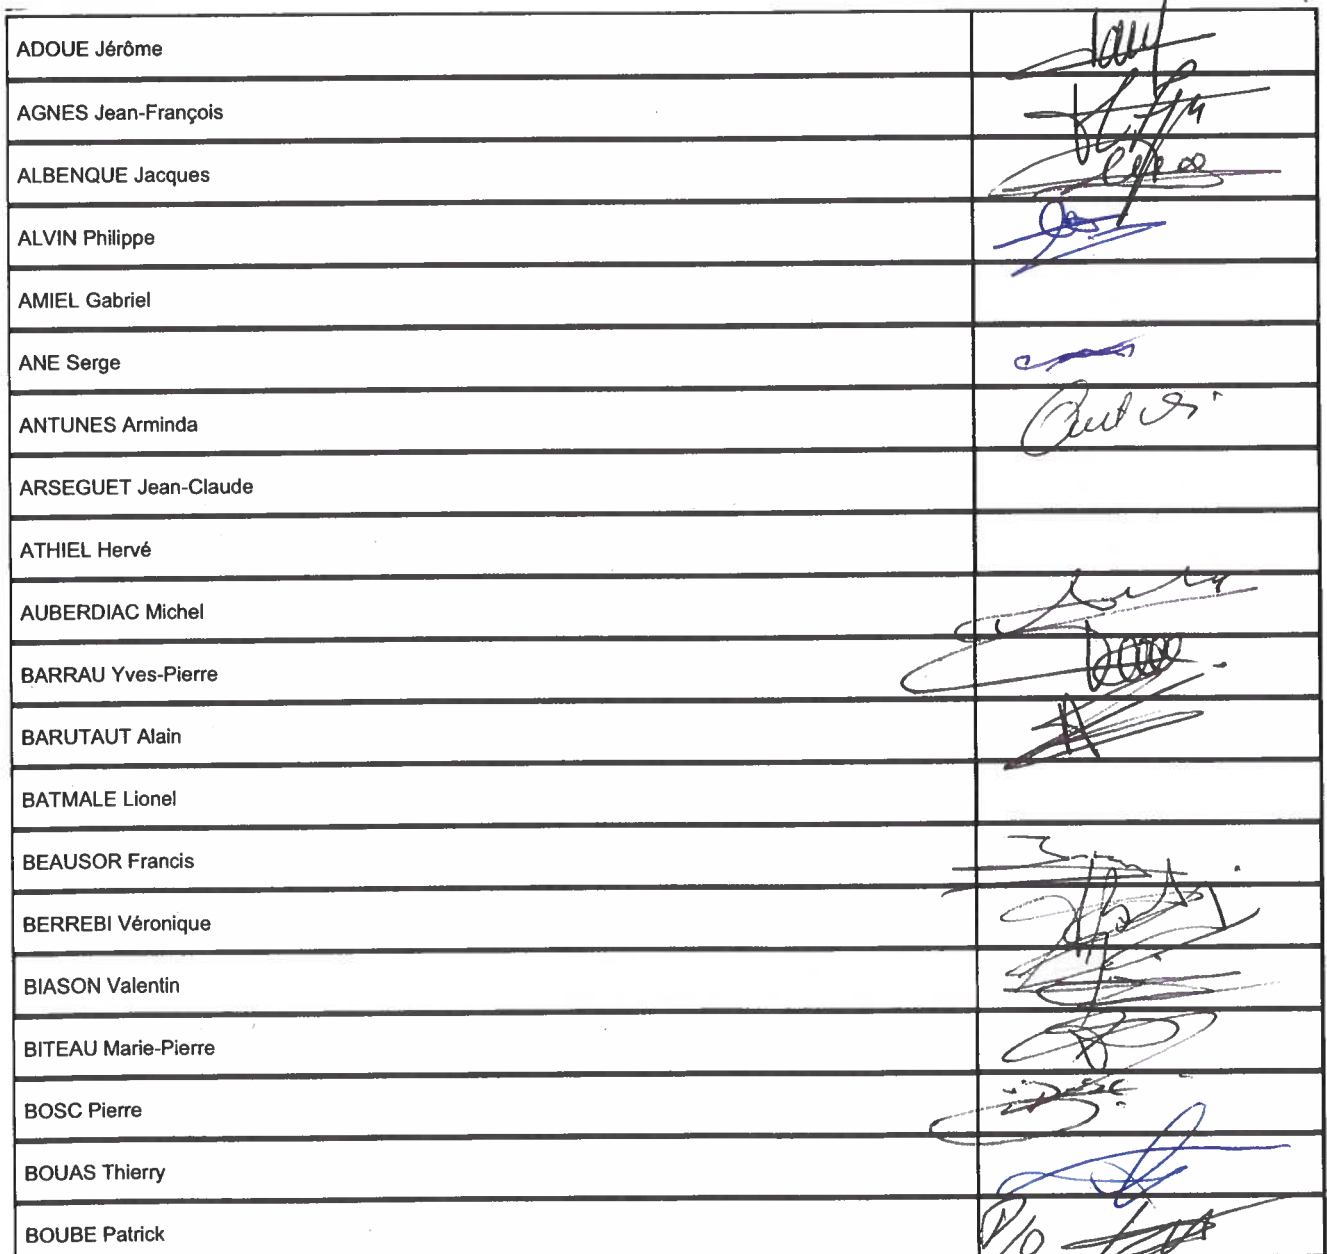 ADOUE Jérôme
AGNES Jean-François
ALBENQUE Jacques
ALVIN Philippe
AMIEL Gabriel
ANE Serge
ANTUNES Arminda
ARSEGUET Jean-Claude
ATHIEL Hervé
AUBERDIAC Michel
BARRAU Yves-Pierre
BARUTAUT Alain
BATMALE Lionel
BEAUSOR Francis
BERREBI Véronique
BIASON Valentin
BITEAU Marie-Pierre
BOSC Pierre
BOUAS Thierry
BOUBE Patrick P/o